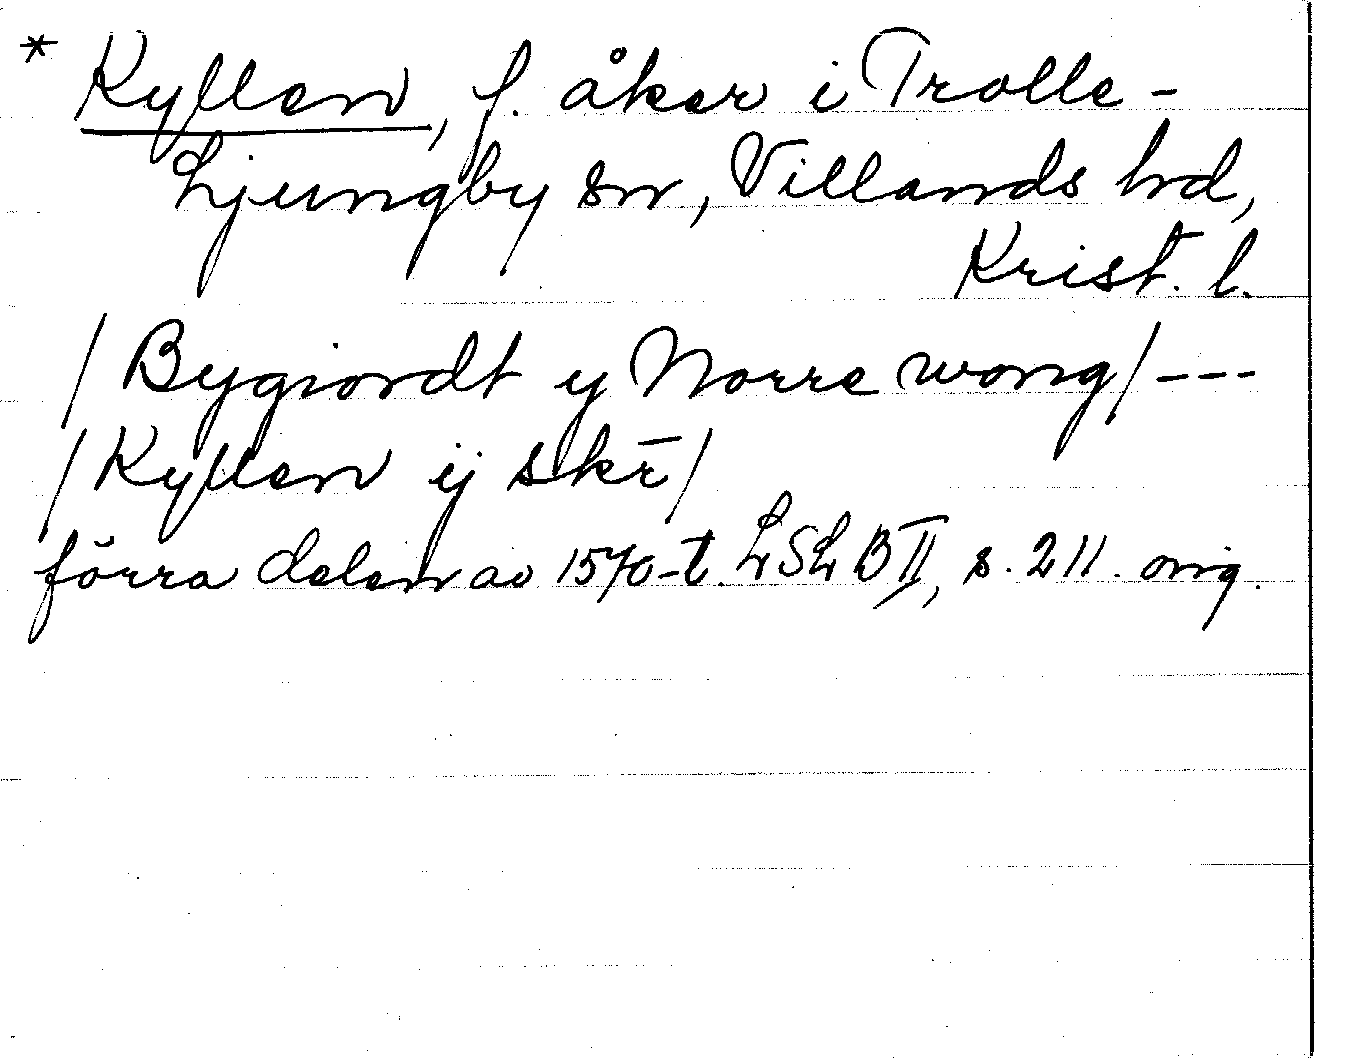 * Kyllen, f. åker i Trolle-
Ljungby sn, Villands hd,
Krist. l.
/Bygiordt y Norre wong/ ---
/Kyllen ij skr̄/
förra delen av 1570-t. LSLB II, s. 211. orig.